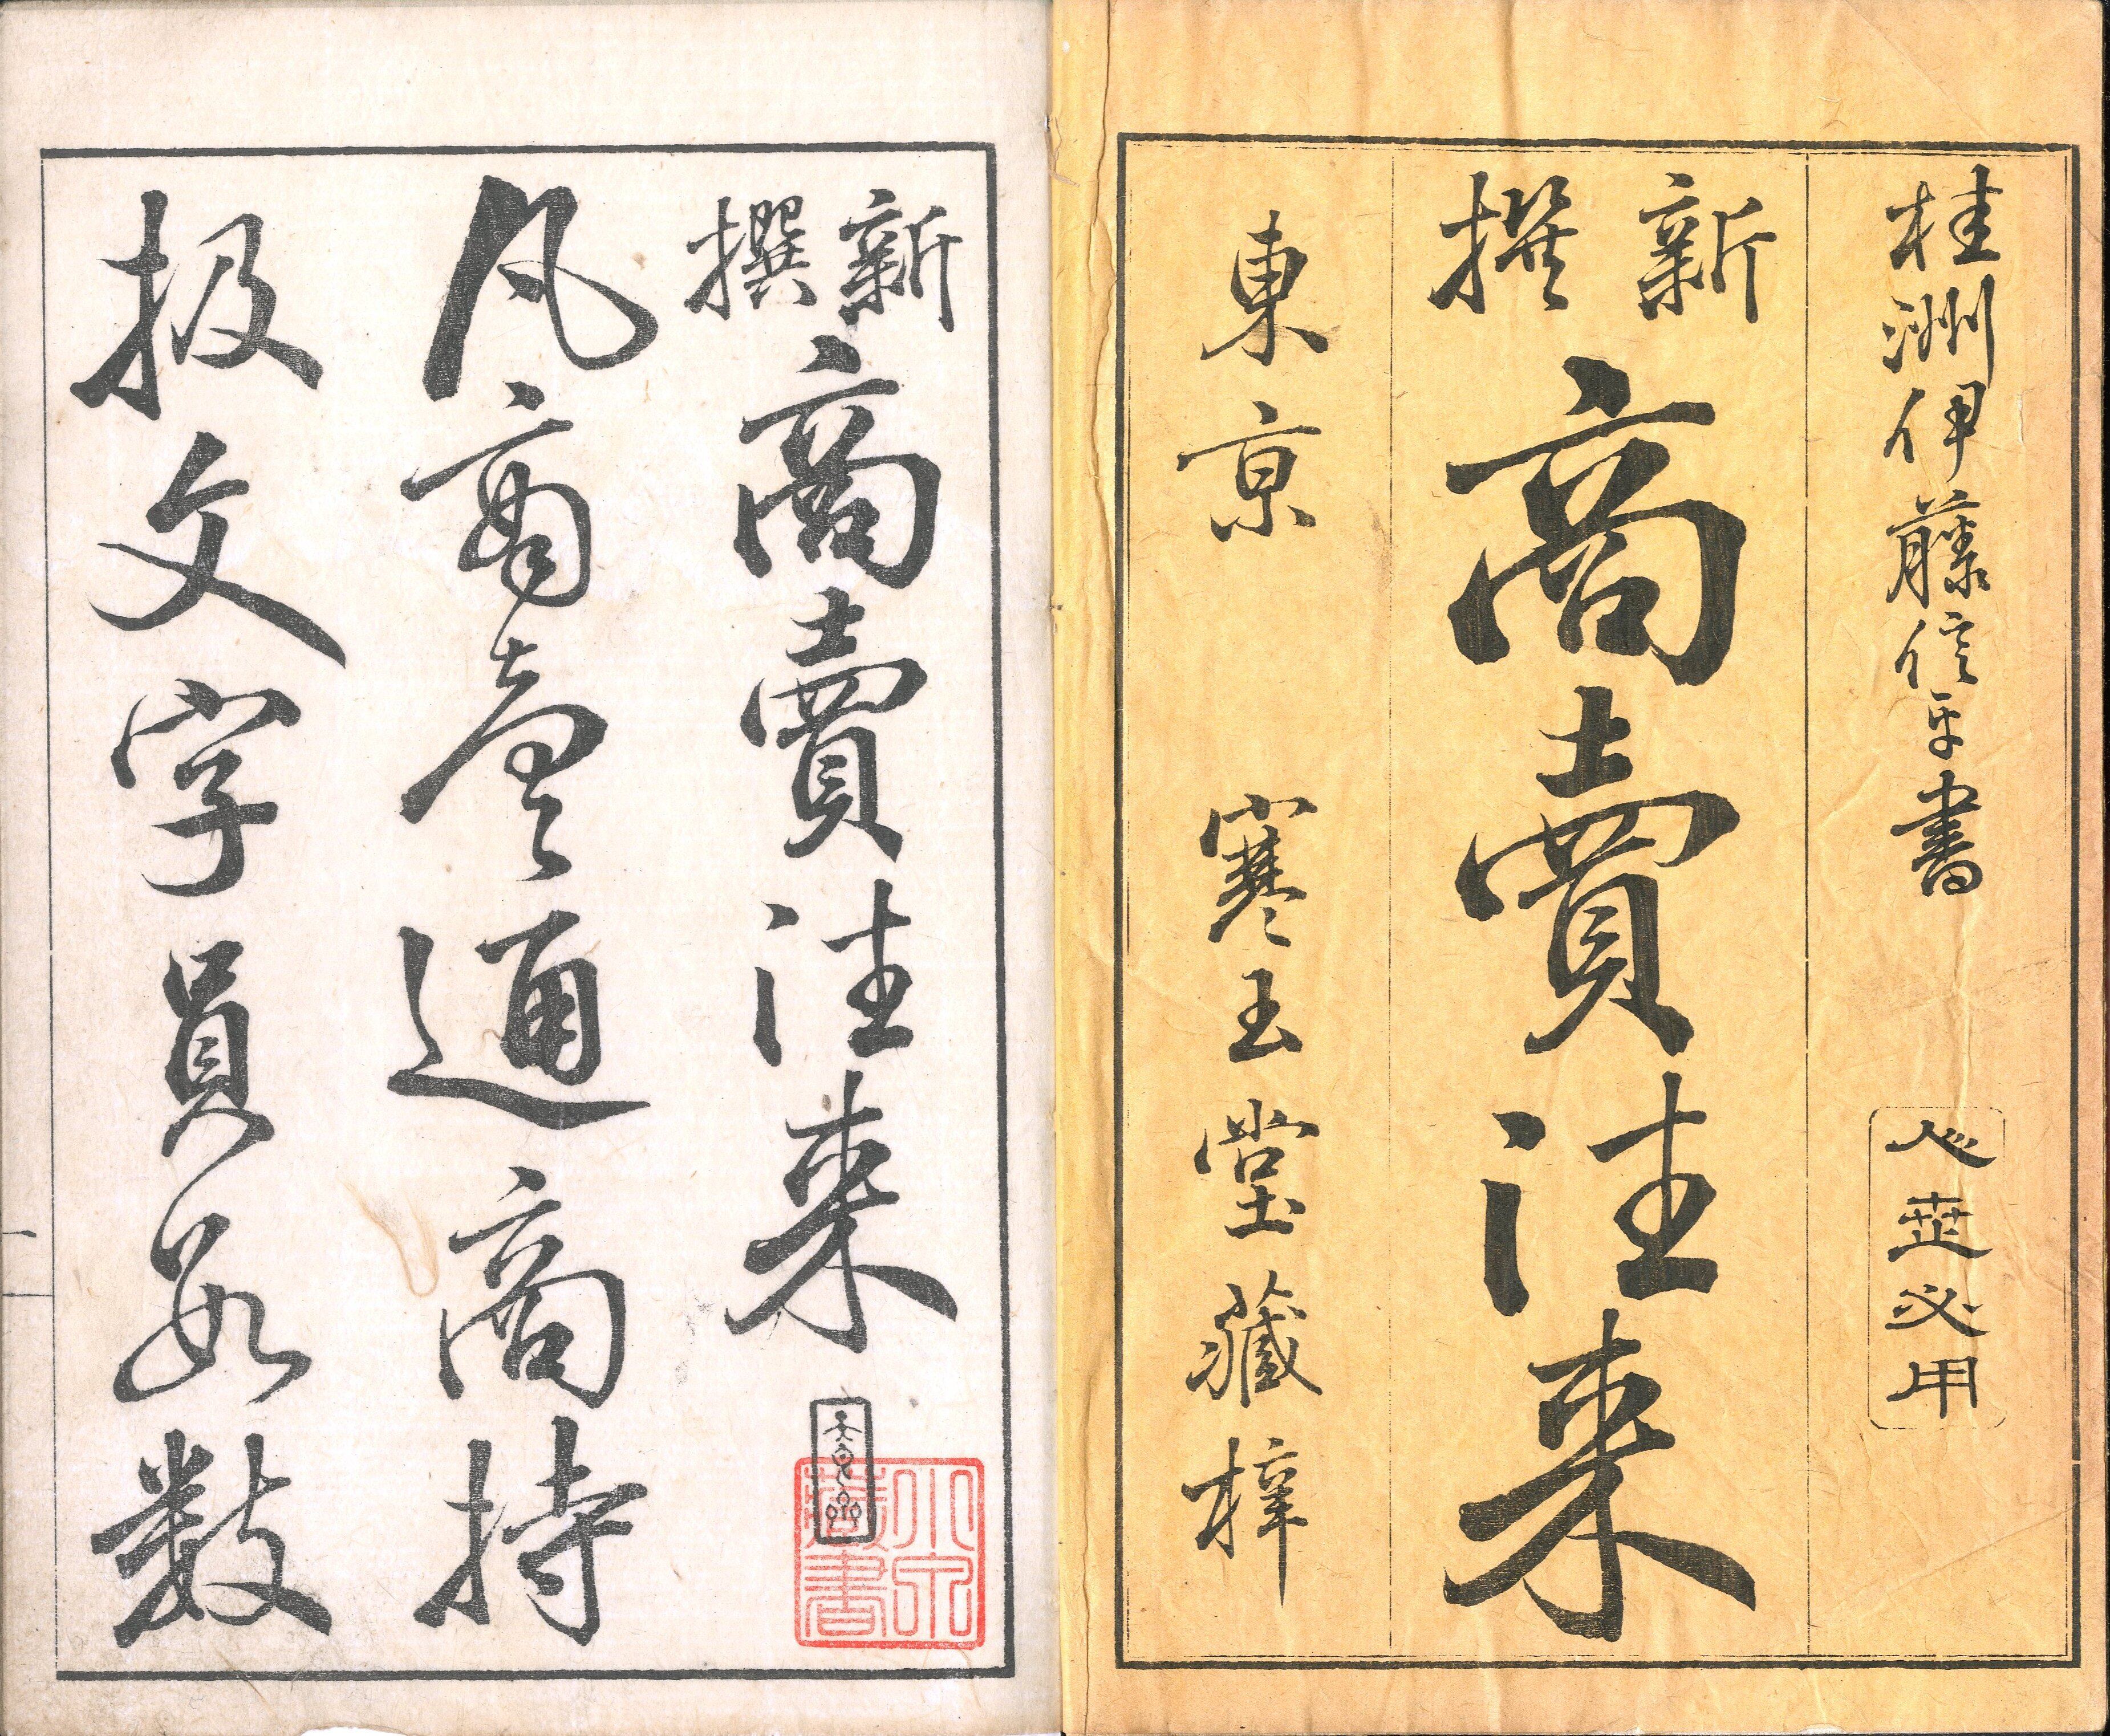 桂洲伊藤信平書
必用
新撰
商賣往来
東京 寒玉堂藏梓
新撰
商賣往来
藏書
凡商賣通商持
扱文字員数